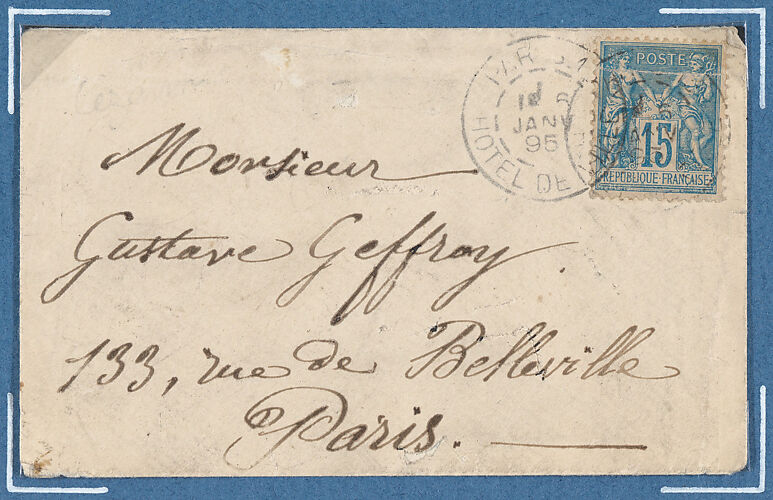 PARIS
1E
JANV
95
HOTEL DE
POSTE
15
REPUBLIQUE FRANÇAISE
Monsieur
Gustave Geffroy.
133, rue de Belleville
Paris.